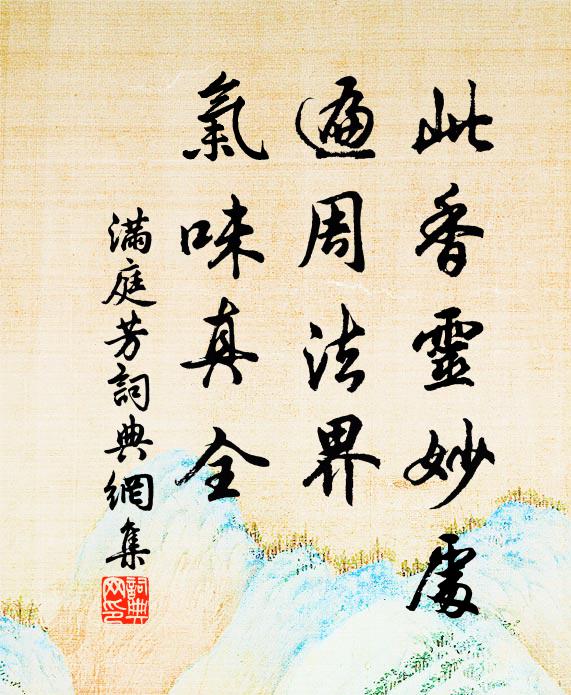 此香靈妙處
遍周法界
氣味真全
滿庭芳詞典網集
詞典網印